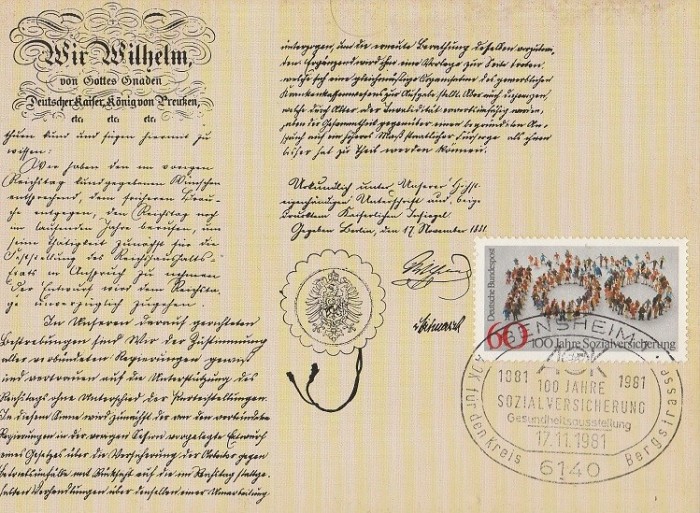 Wir Wilhelm,
von Gottes Gnaden
Deutscher Kaiser, König von Preußen,
etc etc etc
thun kund und fügen hiermit zu
wissen:
Wir haben den im vorigen
Reichstag kundgegebenen Wünschen
entsprechend, dem früheren Gebrau-
che entgegen, den Reichstag noch
im laufenden Jahre berufen, um
seine Thätigkeit zunächst für die
Feststellung des Reichshaushalts-
Etats in Anspruch zu nehmen.
Der Entwurf wird dem Reichsta-
ge unverzüglich zugehen.
In Unseren darauf gerichteten
Bestrebungen sind Wir der Zustimmung
aller verbündeten Regierungen gewiß
und vertrauen auf die Unterstützung des
Reichstags ohne Unterschied der Parteistellungen.
In diesem Sinne wird zunächst der von den verbündeten
Regierungen in der vorigen Session vorgelegte Entwurf
eines Gesetzes über die Versicherung der Arbeiter gegen
Betriebsunfälle mit Rücksicht auf die im Reichstag stattge-
habten Verhandlungen über denselben einer Umarbeitung
unterzogen, um die erneute Berathung desselben vorzuberei-
ten. Ergänzend wird ihm eine Vorlage zur Seite treten,
welche sich eine gleichmäßige Organisation des gewerblichen
Krankenkassenwesens zur Aufgabe stellt. Aber auch diejenigen,
welche durch Alter oder Invalidität erwerbsunfähig werden,
haben der Gesamtheit gegenüber einen begründeten An-
spruch auf ein höheres Maß staatlicher Fürsorge als ihnen
bisher hat zu Theil werden können.
Urkundlich unter Unserer Höchst-
eigenhändigen Unterschrift und beige-
drucktem Kaiserlichen Insiegel.
Gegeben Berlin, den 17. November 1881.
Wilhelm
v Bismarck
Deutsche Bundespost
100
60
100 Jahre Sozialversicherung
BENSHEIM
AOK
1981 1981
100 JAHRE
SOZIALVERSICHERUNG
Gesundheitsausstellung
17.11.1981
AOK für den Kreis Bergstrasse
6140